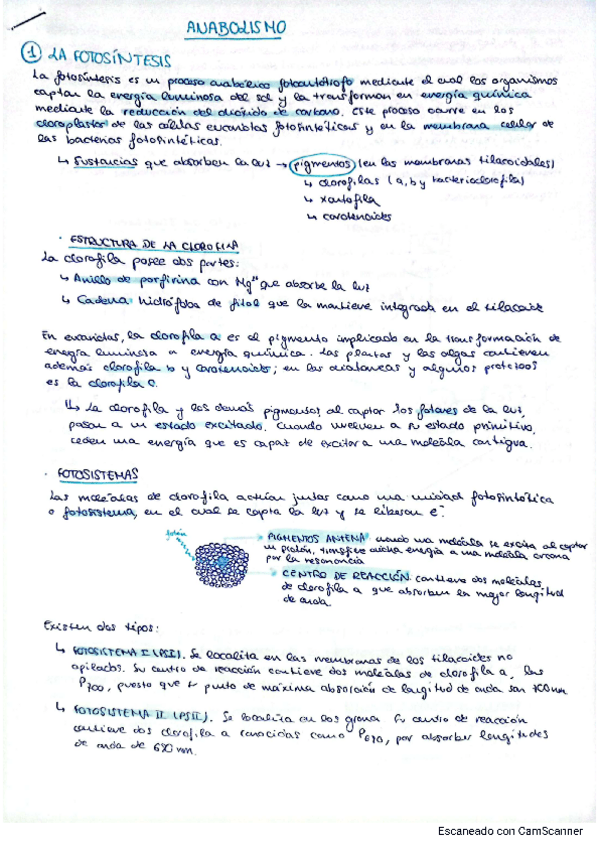 ANABOLISMO
1 LA FOTOSÍNTESIS
La fotosíntesis es un proceso anabólico fotoautótrofo mediante el cual los organismos
captan la energía luminosa del sol y la transforman en energía química
mediante la reducción del dióxido de carbono. Este proceso ocurre en los
cloroplastos de las células eucariotas fotosintéticas y en la membrana celular de
las bacterias fotosintéticas.
↳ Sustancias que absorben la luz → pigmentos (en las membranas tilacoidales)
↳ clorofilas (a, b y bacterioclorofila)
↳ xantofila
↳ carotenoides
· ESTRUCTURA DE LA CLOROFILA
La clorofila posee dos partes:
↳ Anillo de porfirina con Mg²⁺ que absorbe la luz
↳ Cadena hidrófoba de fitol que la mantiene integrada en el tilacoide
En eucariotas, la clorofila a es el pigmento implicado en la transformación de
energía luminosa a energía química. Las plantas y las algas contienen
además clorofila b y carotenoides; en las y algunos protozoos
es la clorofila c.
↳ La clorofila y los demás pigmentos, al captar los fotones de la luz,
pasan a un estado excitado. Cuando vuelven a su estado primitivo,
ceden una energía que es capaz de excitar a una molécula contigua.
· FOTOSISTEMAS
Las moléculas de clorofila actúan juntas como una unidad fotosintética
o fotosistema, en el cual se capta la luz y se liberan e⁻.
fotón
PIGMENTOS ANTENA cuando una molécula se excita al captar
un protón, transfiere dicha energía a una molécula cercana
por la resonancia
CENTRO DE REACCIÓN contiene dos moléculas
de clorofila a que absorben la mayor longitud
de onda
Existen dos tipos:
↳ FOTOSISTEMA I (PSI). Se localiza en las membranas de los tilacoides no
apilados. Su centro de reacción contiene dos moléculas de clorofila a, las
P700, puesto que su punto de máxima absorción de longitud de onda son 700nm.
↳ FOTOSISTEMA II (PSII). Se localiza en los grana. Su centro de reacción
contiene dos clorofila a conocidas como P680, por absorber longitudes
de onda de 680 nm.
Escaneado con CamScanner